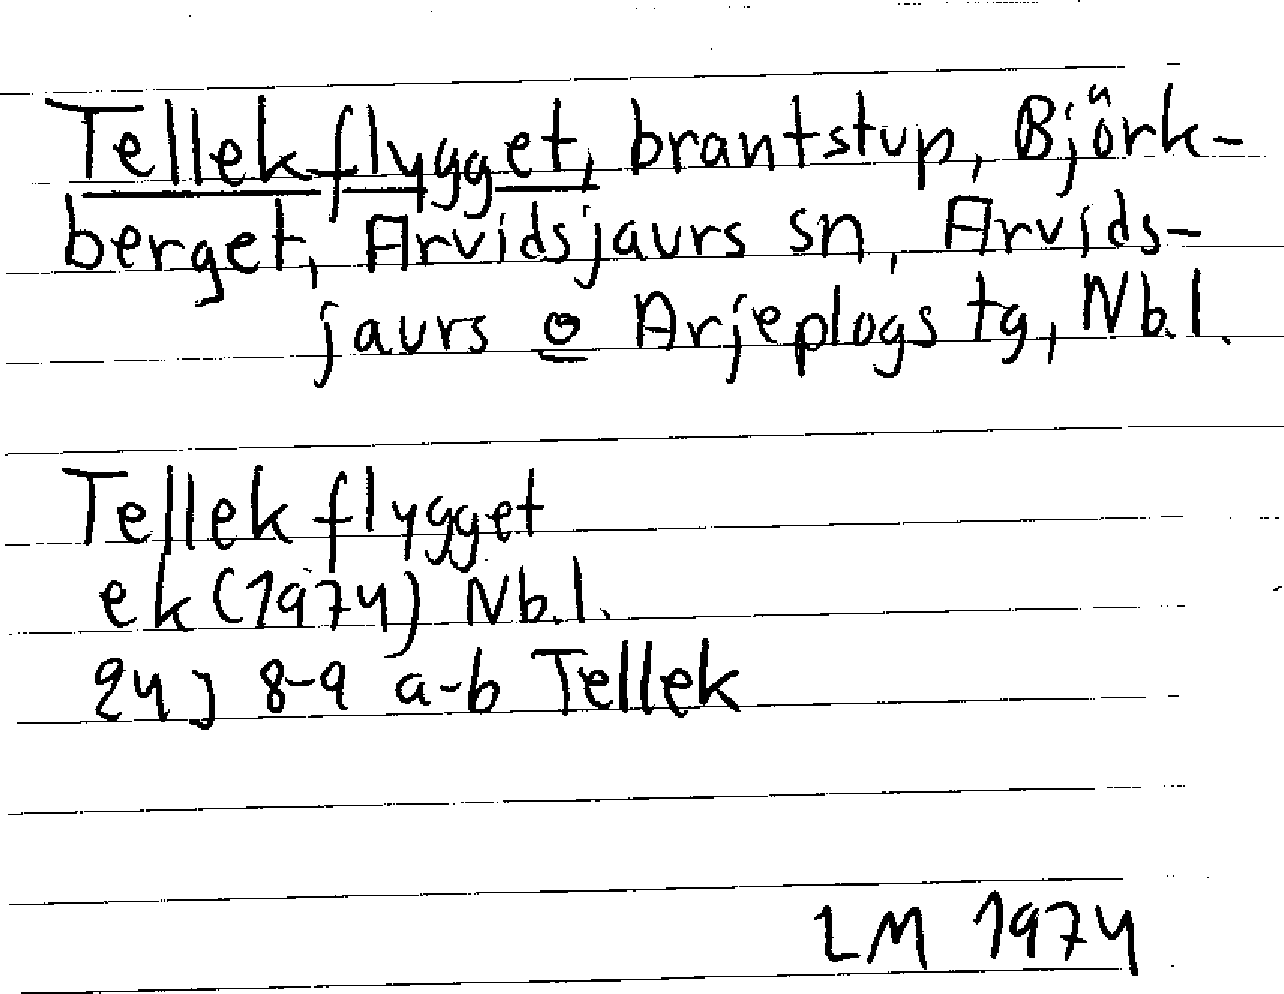 Tellekflygget, brantstup, Björk-
berget, Arvidsjaurs sn, Arvids-
jaurs o Arjeplogs tg, Nb.l.
Tellekflygget
ek (1974) Nb.l.
24J 8-9 a-b Tellek
LM 1974